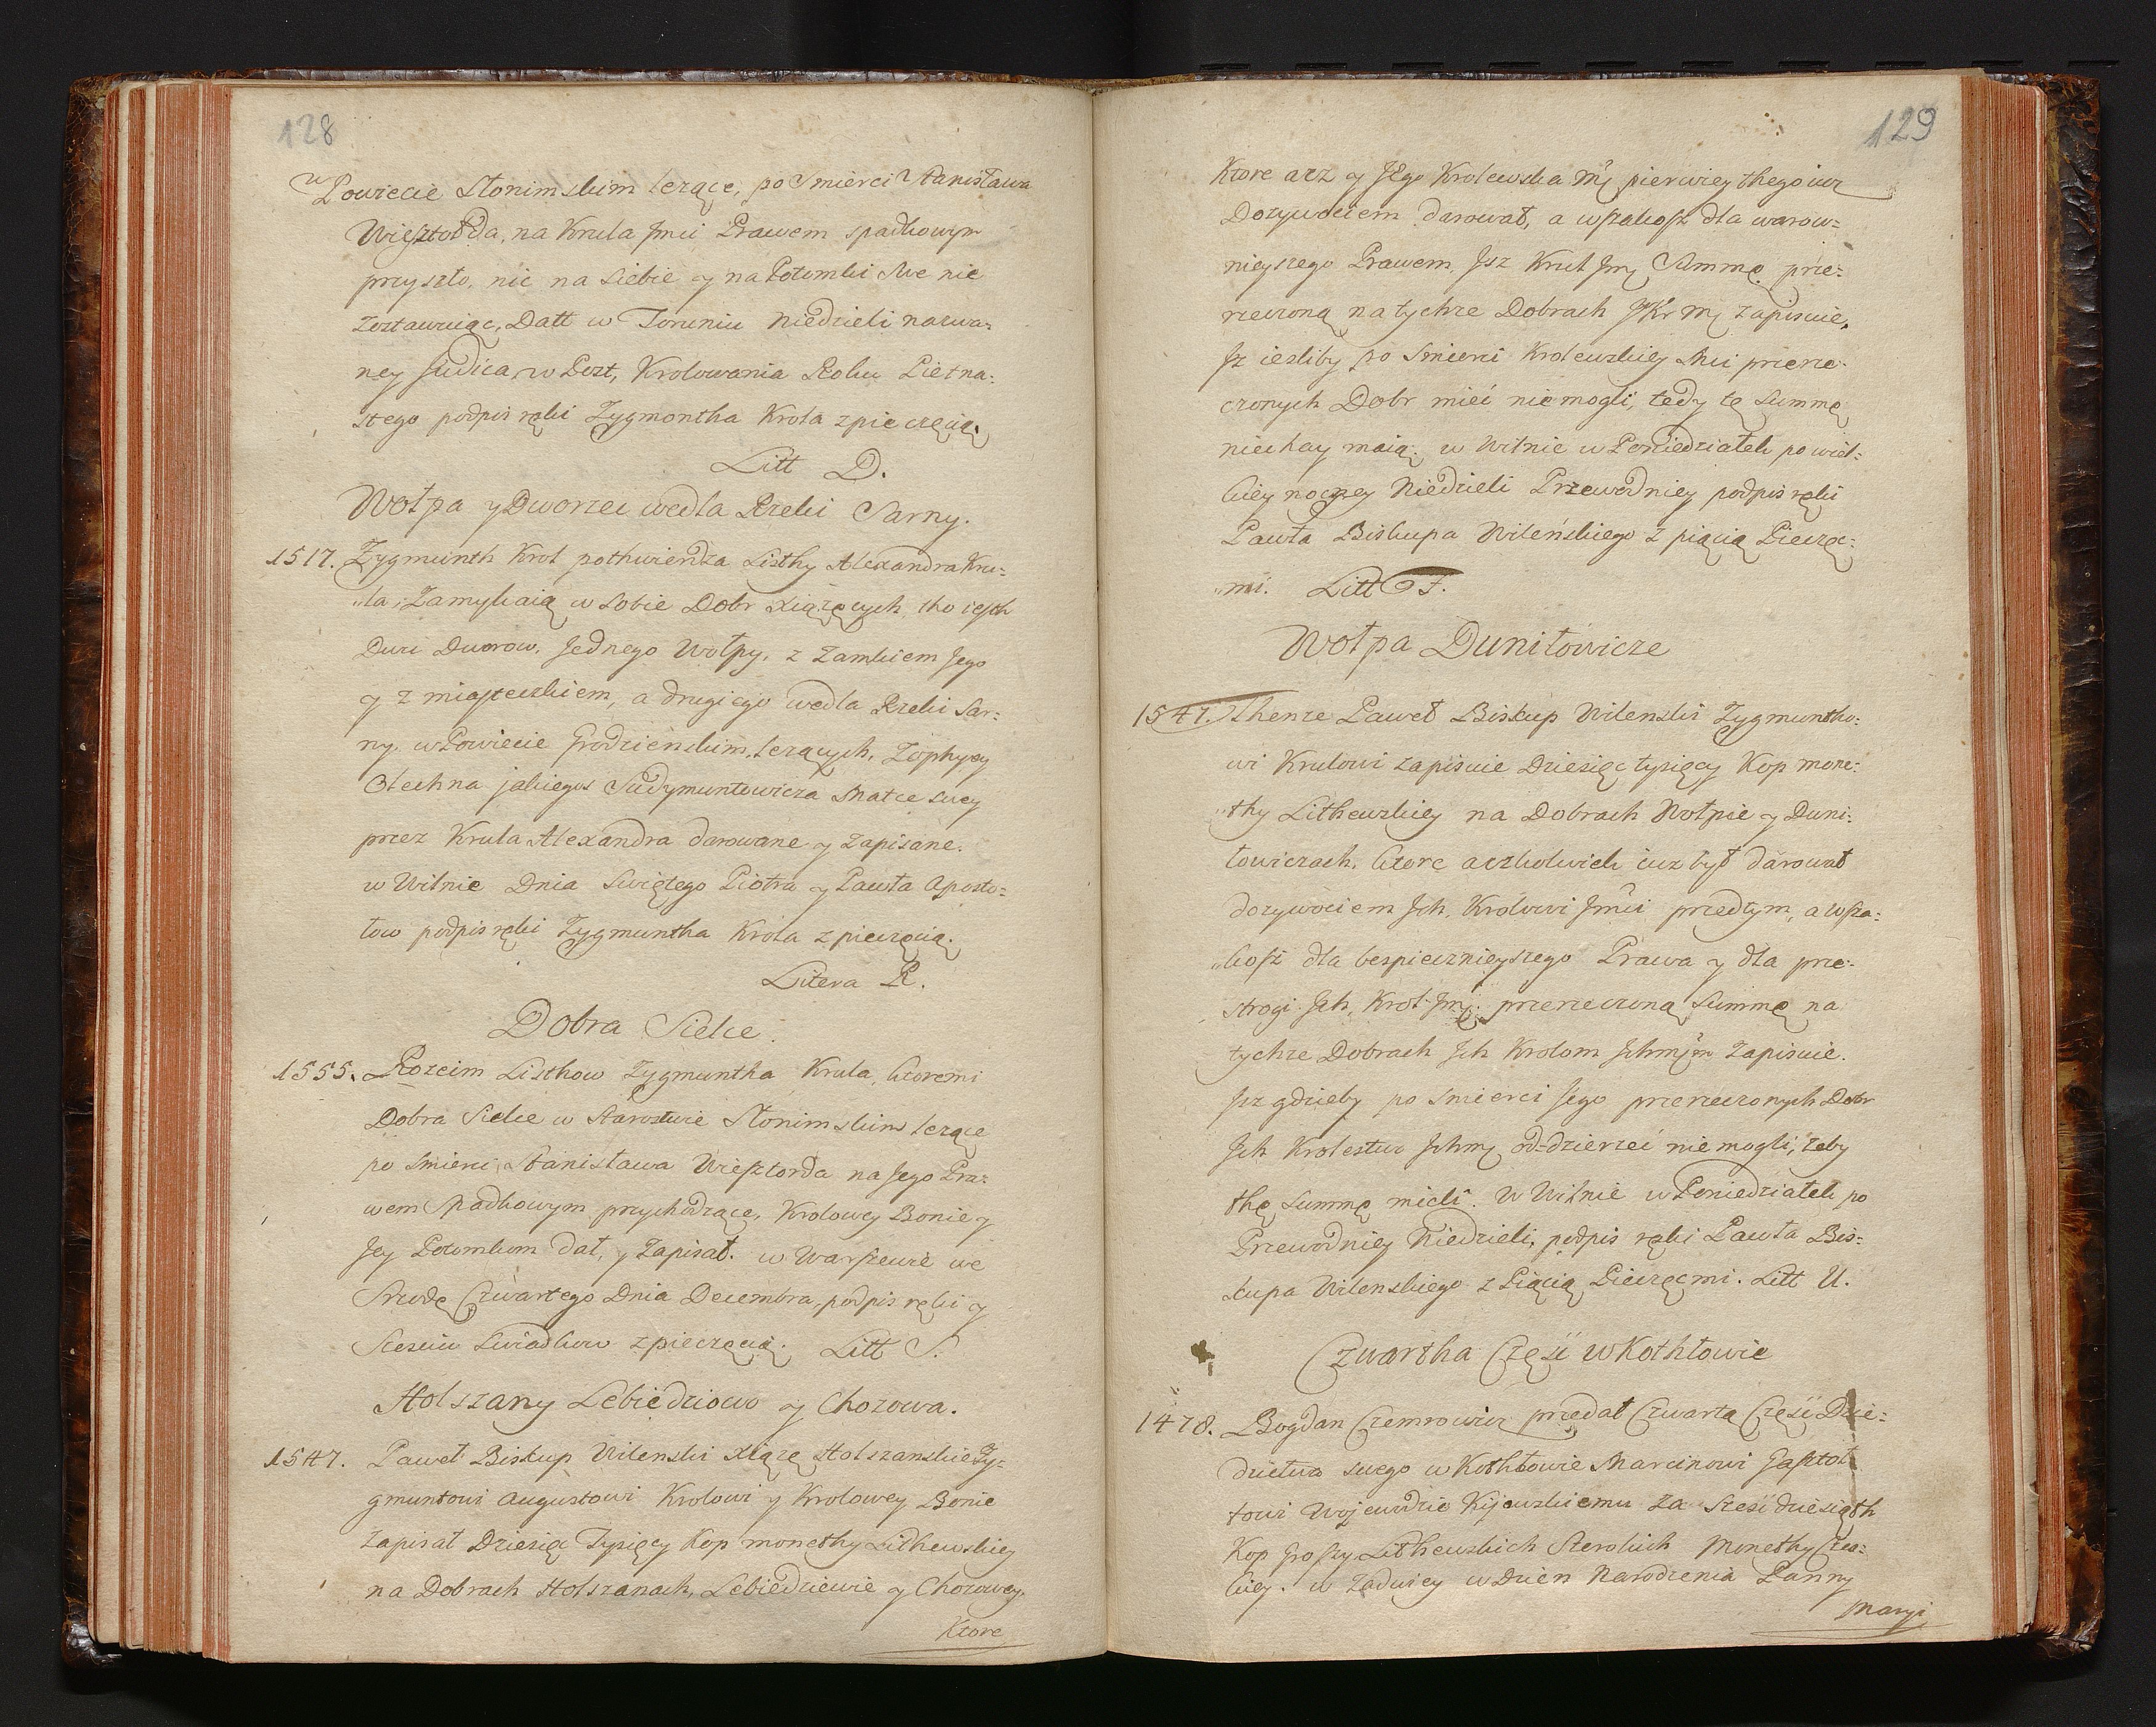 128
w Powiecie Słonimskim lezące, po Smierci Stanisława
Wieysztorda, na Krula Jmci Prawem spadkowym
przyszło, nic na siebie y na Potomki Swe nie
zostawuiąc, Datt w Toruniu Niedzieli nazwa=
ney Judica, w Post, Krolowania Roku Pietna=
stego podpis ręki Zygmontha Krola z pieczęcią.
Litt D.
Wołpa y Dworzec wedla Rzeki Sarny.
1517. Zygmunth Krol pothwierdza Listhy Alexandra Kru=
„la, Zamykaią w Sobie Dobr Xiązęcych, tho iesth
Dwu Dworow, Jednego Wołpy, z Zamkiem Jego
y z miasteczkiem, a drugiego wedla Rzeki Sar=
ny w Powiecie Grodzienskim lezących, Zophyey
Olechna jakiegos Sudymuntowicza Matce swey
przez Krula Alexandra darowane y zapisane.
w Wilnie Dnia Swiętego Piotra y Pawła Aposto=
łow podpis ręki Zygmuntha Krola z pieczęcią.
Litera R.
Dobra Sielce.
1555. Rozeim Listhow Zygmuntha Krula, ktoremi
Dobra Sielce w Starostwie Słonimskim lezące
po Smierci Stanisława Wiesztorda na Jego Pra=
wem Spadkowym przychodzące, Krolowey Bonie y
Jey Potomkom dał, y Zapisał. w Warszewie we
Srzodę Czwartego Dnia Decembra, podpis ręki y
Szesciu Swiadkow z pieczęcią. Litt S.
Holszany Lebiedziowo y Chozowa.
1547. Paweł Biskup Wilenski Xiąze Holszanskie Zy=
gmuntowi Augustowi Krolowi y Krolowey Bonie
zapisał Dziesięć Tysięcy Kop monethy Lithewskiey
na Dobrach Holszanach, Lebiedziewie y Chozowey.
Ktore
129
Ktore acz y Jego Krolewska Mć pierwiey thego iuz
Dozywociem darował, a wszakosz dla warow=
nieyszego Prawem, Jsz Krul Jmć Summę prze=
rzeczoną na tychze Dobrach JKr Mć zapisuie,
Jz iesliby po Smierci Krolewskiey Mci przerze=
czonych Dobr mieć nie mogli, tedy tę Summę
niechay maią. w Wilnie w Poniedziałek po wiel=
kiey nocney Niedzieli Przewodniey podpis ręki
Pawła Biskupa Wileńskiego z piącią Pieczęc=
„mi. Litt T.
Wołpa Duniłowicze
1547. Thenze Paweł Biskup Wilenski Zygmuntho=
wi Krulowi zapisuie Dziesięć tysięcy Kop mone=
„thy Lithewskiey na Dobrach Wołpie y Duni=
łowiczach, ktore aczkolwiek iuz był darował
dozywociem Jch. Krolowi Jmci przedtym, a wsza=
„kosz dla bespiecznieyszego Prawa y dla prze=
strogi Jch. Krol: Jmć. przerzeczoną Summę na
tychze Dobrach Jch Krolom Jchmćm zapisuie.
Jsz gdzieby po Smierci Jego przerzeczonych Dobr
Jch Krolestwo Jchmć od-dzierzeć nie mogli, zeby
thę Summę mieli. W Wilnie w Poniedziałek po
Przewodniey Niedzieli, podpis ręki Pawła Bis=
kupa Wilenskiego z Piącią Pieczęcmi. Litt U.
Czwartha Część w Kothłowie
1478. Bogdan Czemrowicz przedał Czwartą Część Dzie=
dzictwa swego w Kothłowie Marcinowi Gasztoł
towi Wojewodzie Kijewskiemu za Szesćdziesiąth
Kop Groszy Lithewskich Szerokich Monethy Czes=
kiey. w Zadwiey w Dzień Narodzenia Panny
Maryi